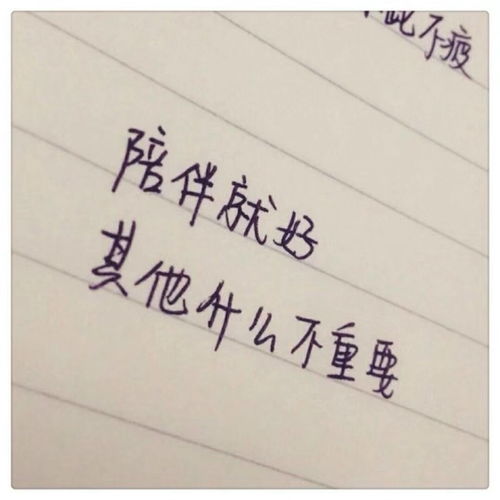 此不疲
陪伴就好
其他什么不重要